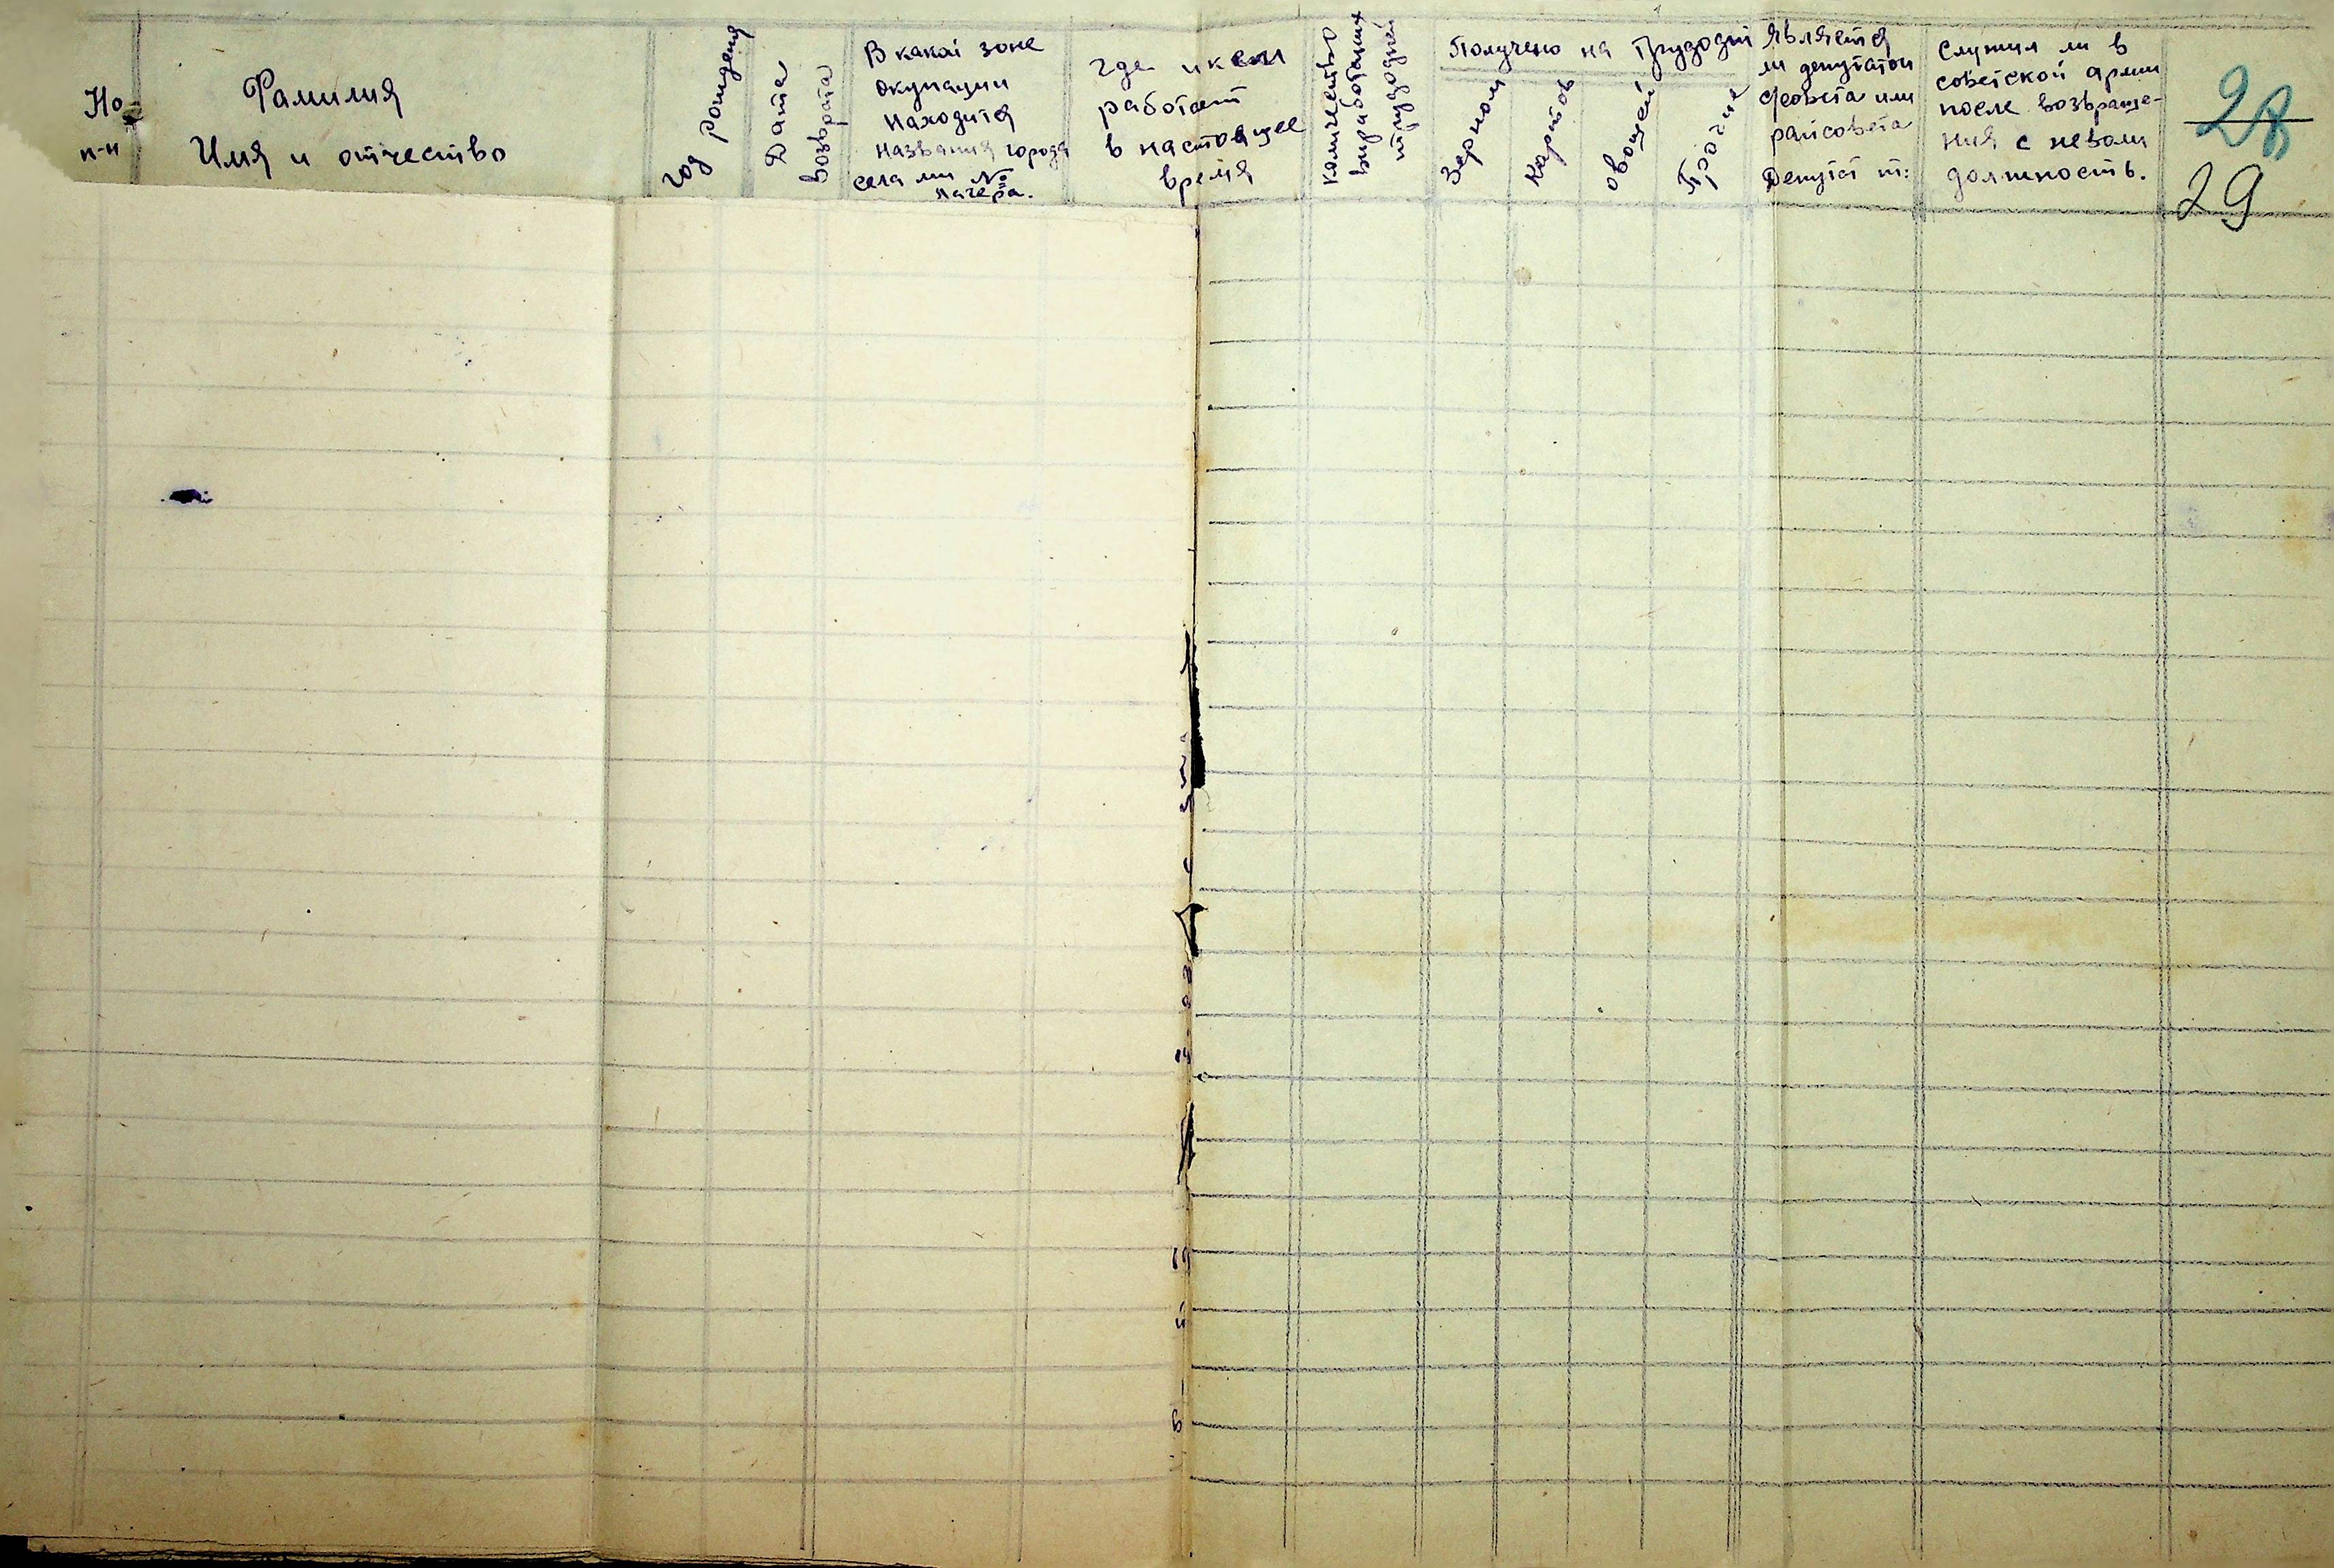 Но-
п-н
Фамилия
Имя и отчество
год рождения
Дата
возврата
В какой зоне
окупации
находится
названия города
села или №
лагеря.
где и кем
работает
в настоящее
время
Количество
выработаних
трудодней
Получено на трудодні
Зерном
Картов
овощей
Прочие
является
ли депутатом
с/совета или
райсовета
Депутат т:
Служил ли в
советской армии
после возвраще-
ния с неволи
должность.
28
29